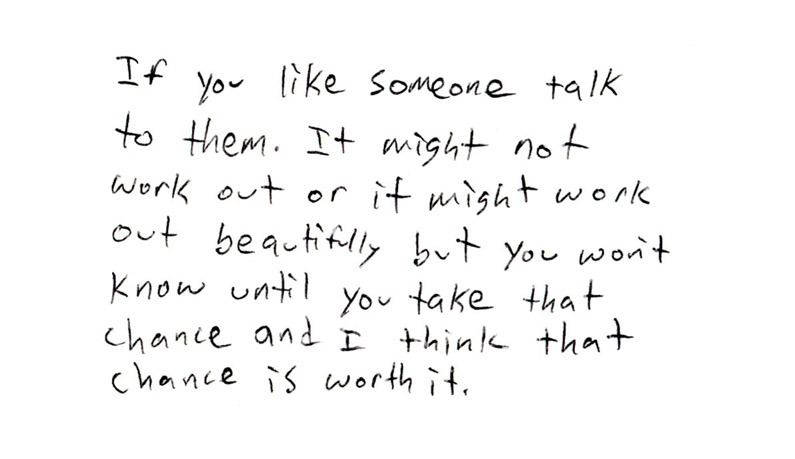 If you like someone talk
to them. It might not
work out or it might work
out beautifully but you won't
know until you take that
chance and I think that
chance is worth it.